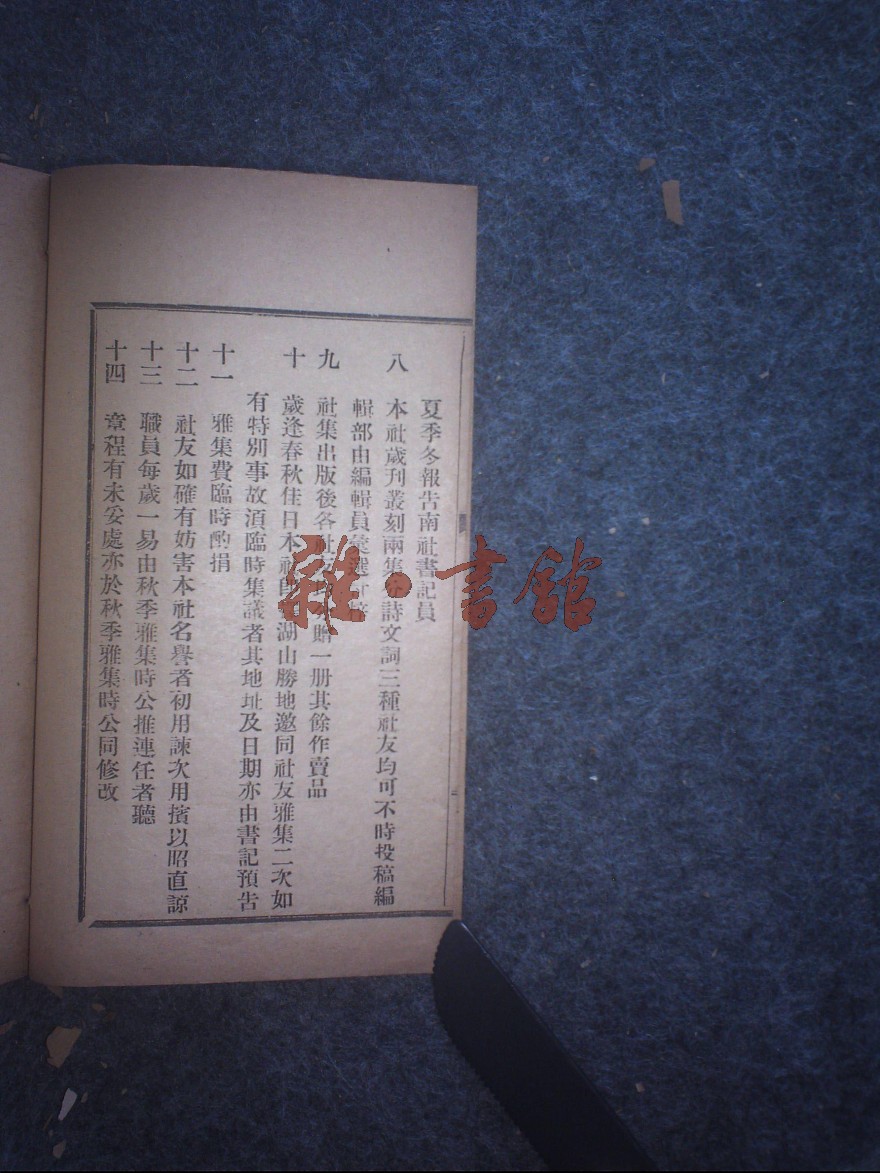 夏季冬報告南社書記員
八 本社歲刊叢刻兩集 詩文詞三種社友均可不時投稿編
輯部由編輯員彙選
九 社集出版後各社友 贈一册其餘作賣品
十 歲逢春秋佳日本社 湖山勝地邀同社友雅集二次如
有特別事故須臨時集議者其地址及日期亦由書記預告
十一 雅集費臨時酌捐
十二 社友如確有妨害本社名譽者初用諫次用擯以昭直諒
十三 職員每歲一易由秋季雅集時公推連任者聽
十四 章程有未妥處亦於秋季雅集時公同修改
雜·書館